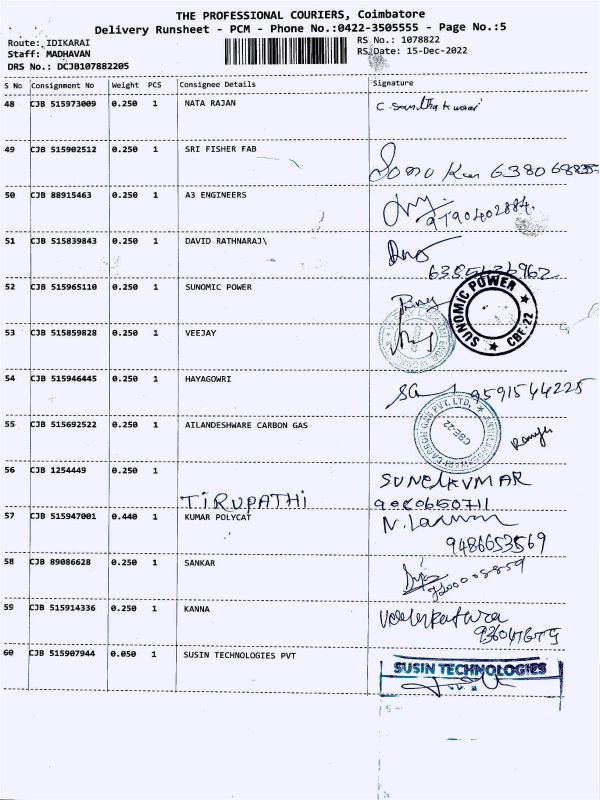 THE PROFESSIONAL COURIERS, Coimbatore
Delivery Runsheet - PCM - Phone No.:0422-3505555 - Page No.:5
Route: IDIKARAI
RS No.: 1078822
Staff: MADHAVAN
RS Date: 15-Dec-2022
DRS No.: DCJB107882205
S No Consignment No Weight PCS Consignee Details Signature
48 CJB 515973009 0.250 1 NATA RAJAN
49 CJB 515902512 0.250 1 SRI FISHER FAB
50 CJB 88915463 0.250 1 A3 ENGINEERS
51 CJB 515839843 0.250 1 DAVID RATHNARAJ\
52 CJB 515965110 0.250 1 SUNOMIC POWER
SUNOMIC POWER ★ CBE-22 ★
53 CJB 515859828 0.250 1 VEEJAY
54 CJB 515946445 0.250 1 HAYAGOWRI
9591544225
55 CJB 515692522 0.250 1 AILANDESHWARE CARBON GAS
CBE-22
56 CJB 1254449 0.250 1
TIRUPATHI
SUNELKUMAR
9080650711
57 CJB 515947001 0.440 1 KUMAR POLYCAT
9486653569
58 CJB 89086628 0.250 1 SANKAR
59 CJB 515914336 0.250 1 KANNA
60 CJB 515907944 0.050 1 SUSIN TECHNOLOGIES PVT
SUSIN TECHNOLOGIES